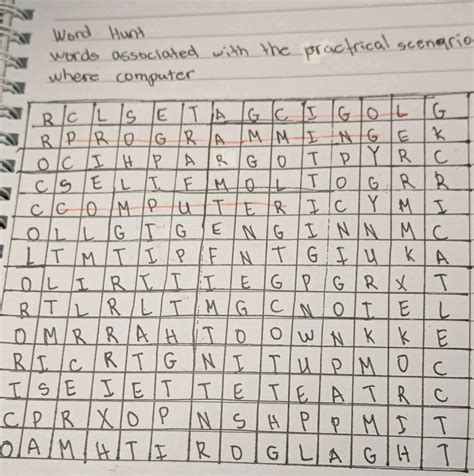 Word Hunt
Words associated with the practrical scenario
where computer
R C L S E T A G C I G O L G
R P R O G R A M M I N G E K
O C I H P A R G O T P Y R C
C S E L I F M O L T O G R R
C C O M P U T E R I C Y M I
O L L G I G E N G I N N M C
L T M T I P F N T G I U K A
O L I R I I I E G P G R X T
R T L R L T M G C N O I E L
O M R R A H T O O W N K K E
R I C R T G N I T U P M O C
I S E I E T T E T E A T R C
C P R X O P N S H P P M I T
O A M H T I R O G L A G H T